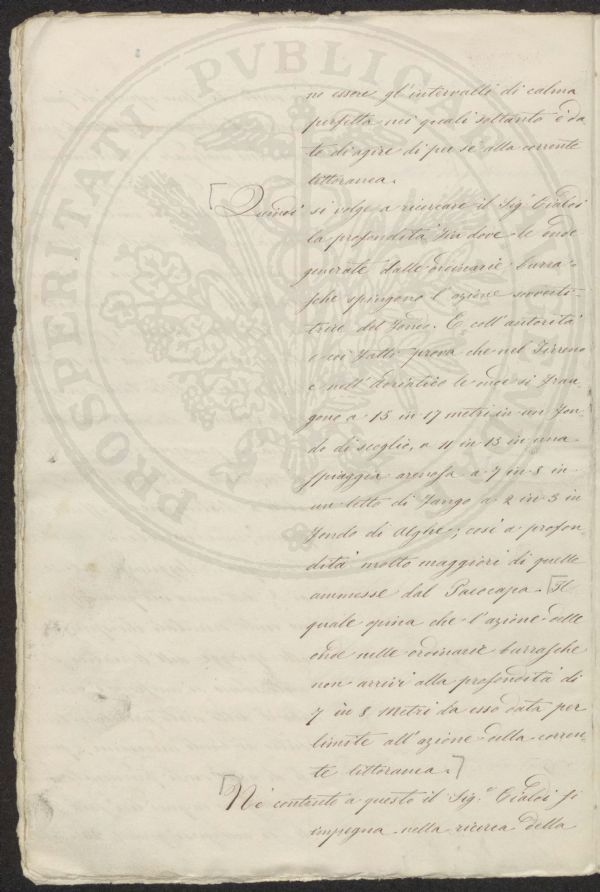 PROSPERITATI PVBLICAE
no essere gl'intervalli di calma
perfetta nei quali soltanto è da
to di agire di per sè alla corrente
littoranea.
[Quindi si volge a ricercare il Sig.r Cialdi
la profondità fin dove le onde
generate dalle ordinarie burra-
sche spingono l'azione sovverti-
trice del fondo. E coll'autorità
e coi fatti prova che nel Tirreno
e nell'Adriatico le onde si fran-
gono a 15 in 17 metri in un fon-
do di scoglio, a 11 in 13 in una
spiaggia arenosa a 7 in 8 in
un letto di fango a 2 in 3 in
fondo di alghe; così a profon-
dità molto maggiori di quelle
ammesse dal Paleocapa. [Il
quale opina che l'azione delle
onde nelle ordinarie burrasche
non arrivi alla profondità di
7 in 8 metri da esso data per
limite all'azione della corren-
te littoranea.]
[Nè contento a questo il Sig.r Cialdi si
impegna nella ricerca della